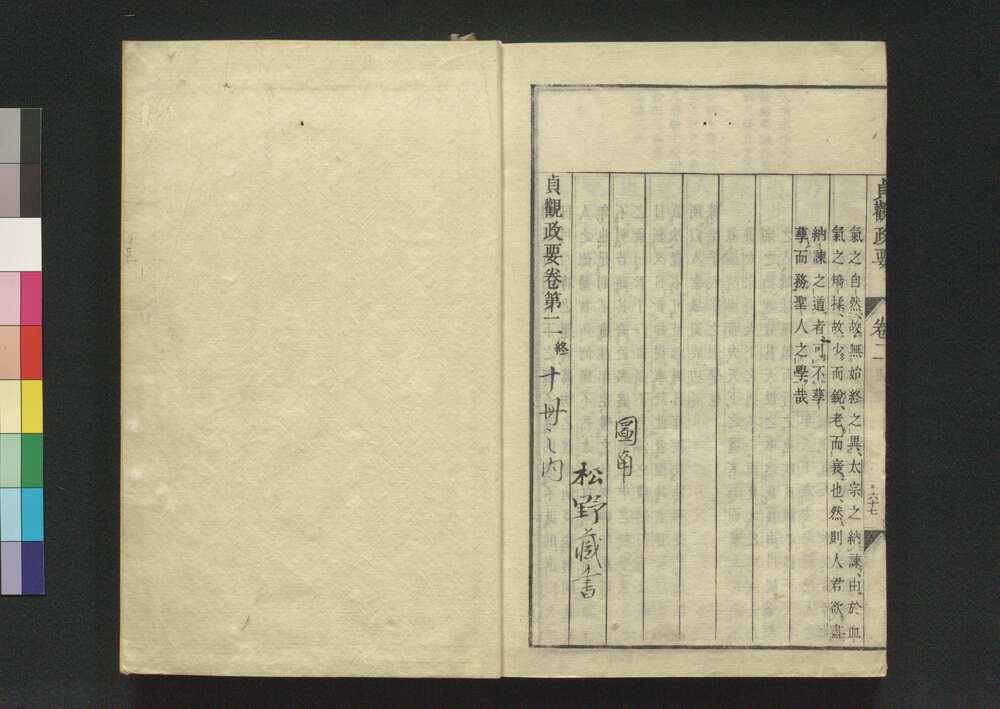 貞觀政要 卷二 六十七
氣之自然故無始終之異太宗之納諫由於血
氣之矯揉故少而銳老而衰也然則人君欲盡
納諫之道者可不孳
孳而務聖人之學哉
圖南
松野藏書
貞觀政要卷第二終
十册之內